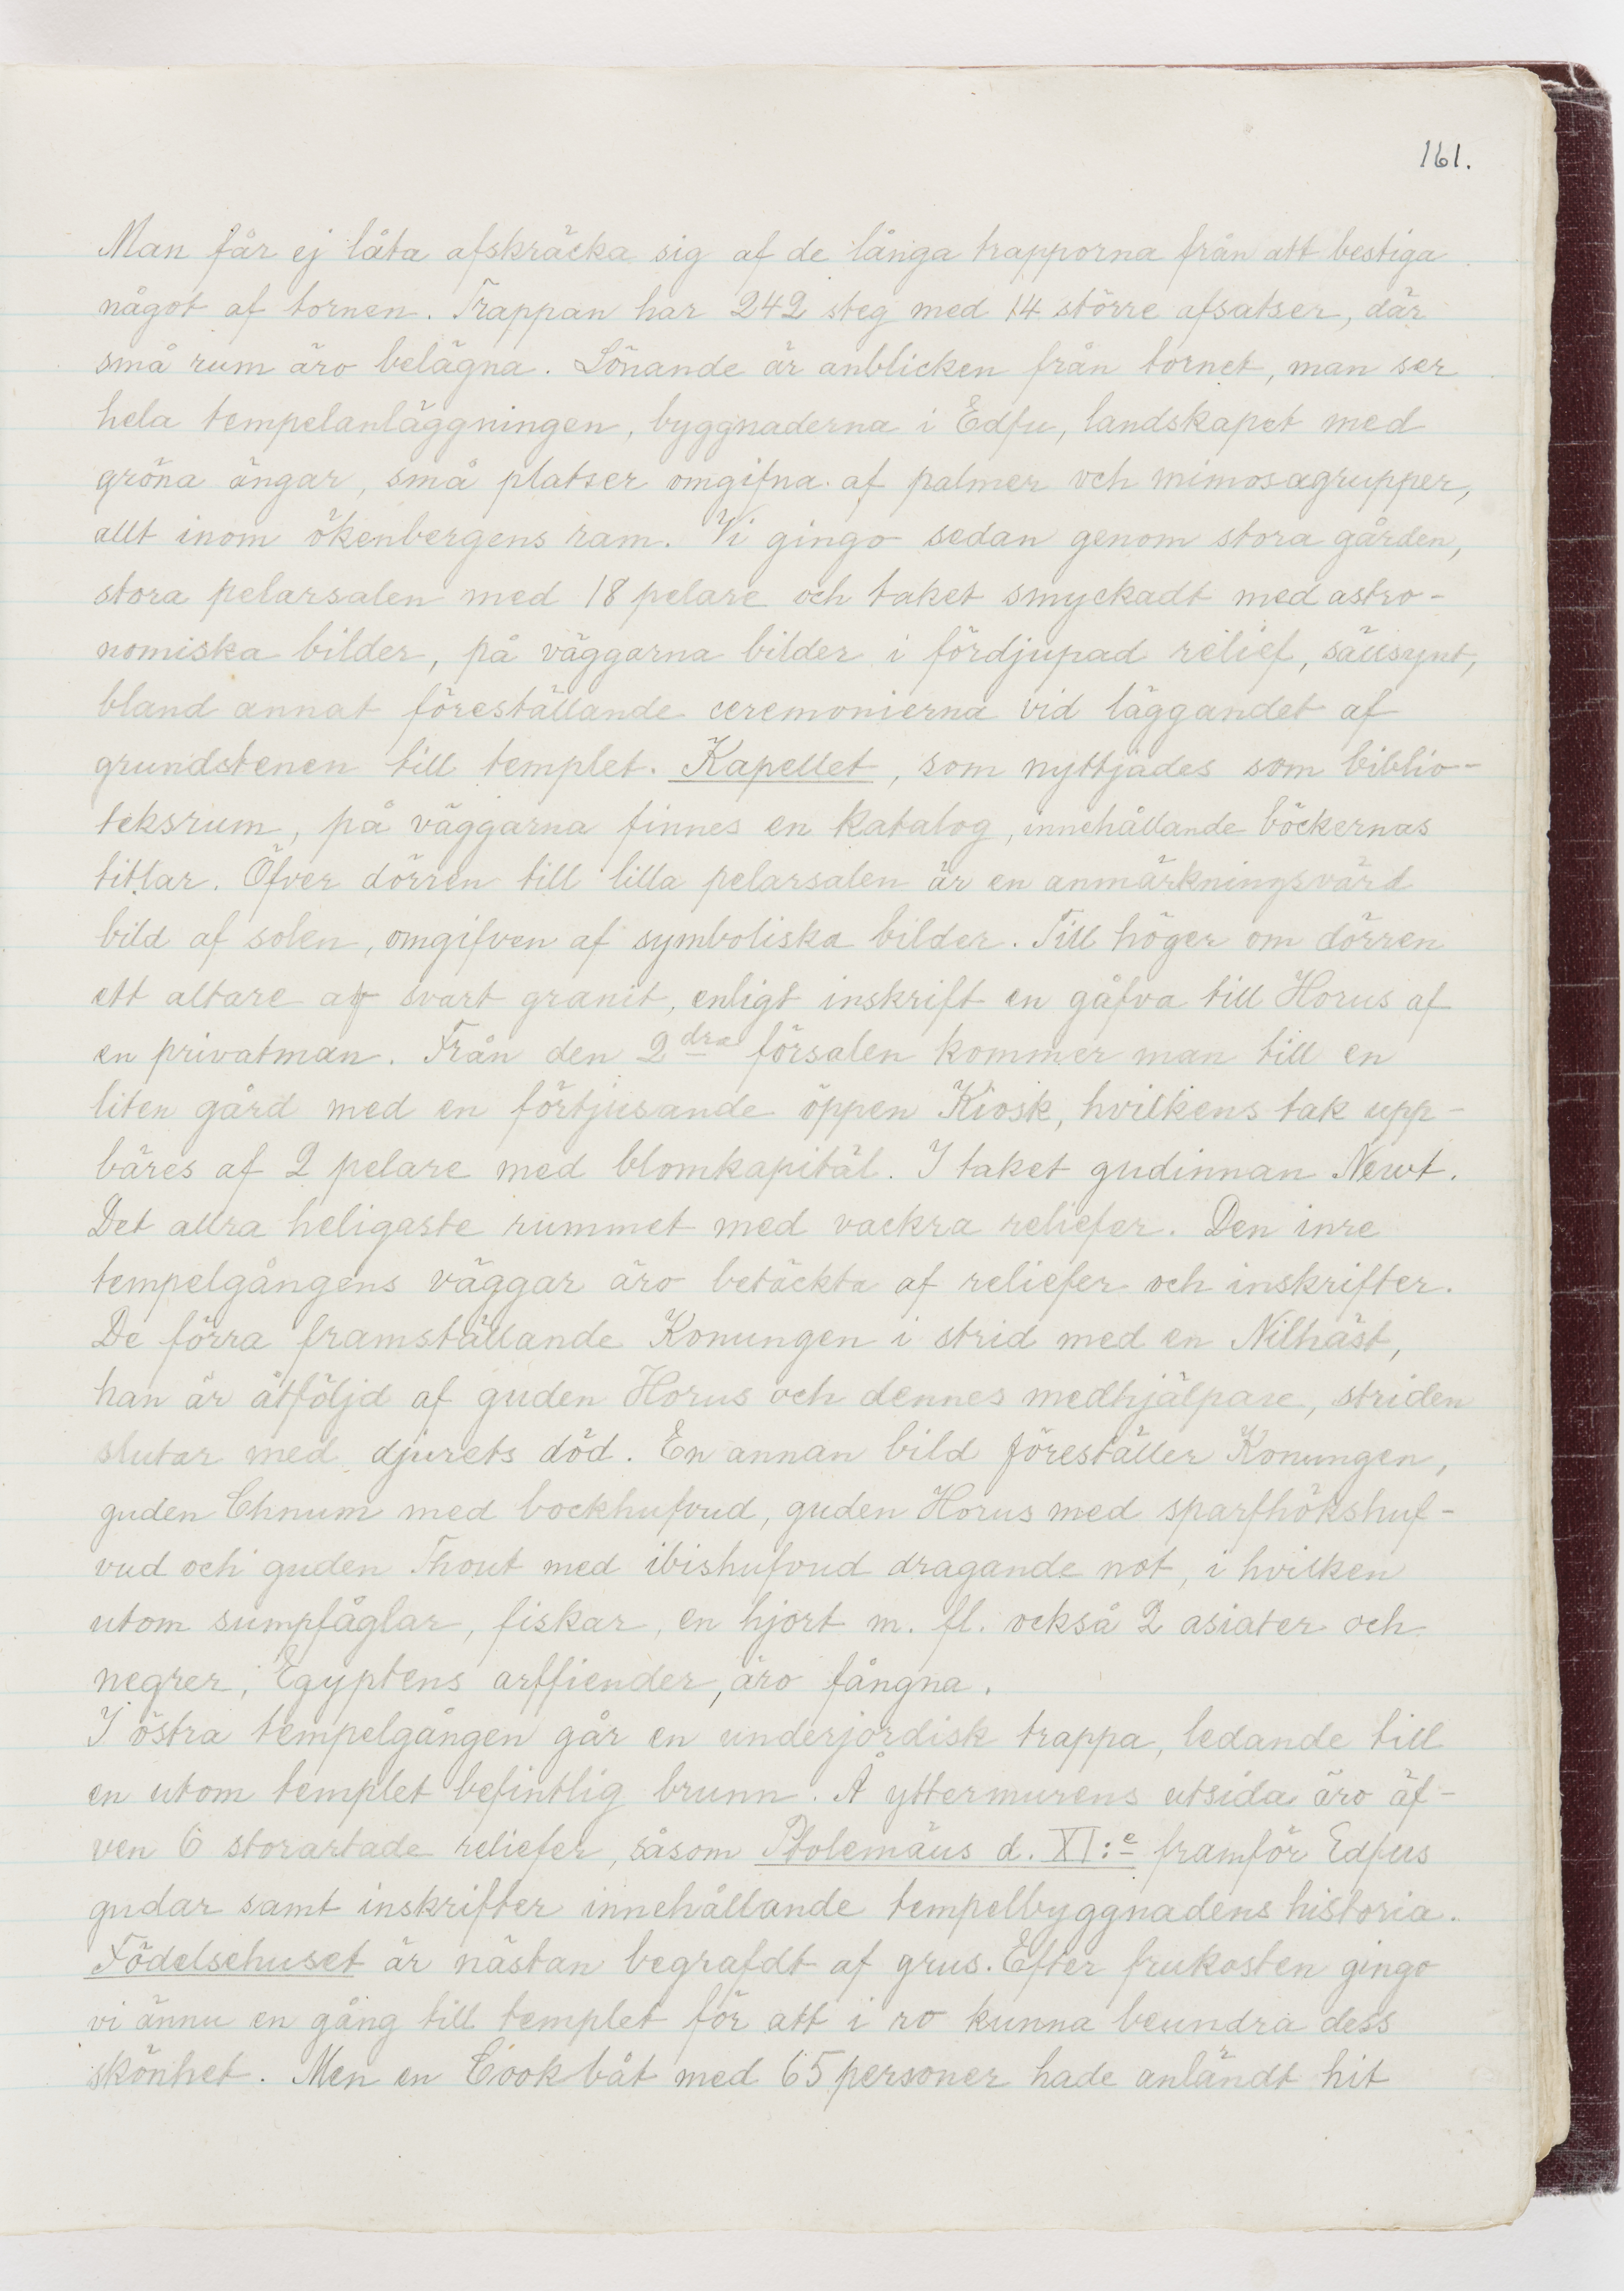 161.
Man får ej låta afskräcka sig af de långa trapporna från att bestiga
något af tornen. Trappan har 242 steg med 14 större afsatser, där
små rum äro belägna. Lönande är anblicken från tornet, man ser
hela tempelanläggningen, byggnaderna i Edfu, landskapet med
gröna ängar, små platser omgifna af palmer och mimosagrupper,
allt inom ökenbergens ram. Vi gingo sedan genom stora gården,
stora pelarsalen med 18 pelare och taket smyckadt med astro-
nomiska bilder, på väggarna bilder i fördjupad relief, sällsynt,
bland annat föreställande ceremonierna vid läggandet af
grundstenen till templet. Kapellet, som nyttjades som biblio-
teksrum, på väggarna finnes en katalog, innehållande böckernas
titlar. Öfver dörren till lilla pelarsalen är en anmärkningsvärd
bild af solen, omgifven af symboliska bilder. Till höger om dörren
ett altare af svart granit, enligt inskrift en gåfva till Horus af
en privatman. Från den 2dra försalen kommer man till en
liten gård med en förtjusande öppen Kiosk, hvilkens tak upp-
bäres af 2 pelare med blomkapitäl. I taket gudinnan Newt.
Det allra heligaste rummet med vackra reliefer. Den inre
tempelgångens väggar äro betäckta af reliefer och inskrifter.
De förra framställande Konungen i strid med en Nilhäst,
han är åtföljd af guden Horus och dennes medhjälpare, striden
slutar med djurets död. En annan bild föreställer Konungen,
guden Chnum med bockhufvud, guden Horus med sparfhökshuf-
vud och guden Thout med ibishufvud dragande not, i hvilken
utom sumpfåglar, fiskar, en hjort m. fl. också 2 asiater och
negrer, Egyptens arffiender, äro fångna.
I östra tempelgången går en underjordisk trappa, ledande till
en utom templet befintlig brunn. Å yttermurens utsida äro äf-
ven 6 storartade reliefer, såsom Ptolemäus d. XI:e framför Edfus
gudar samt inskrifter innehållande tempelbyggnadens historia.
Födelsehuset är nästan begrafdt af grus. Efter frukosten gingo
vi ännu en gång till templet för att i ro kunna beundra dess
skönhet. Men en Cook båt med 65 personer hade anländt hit